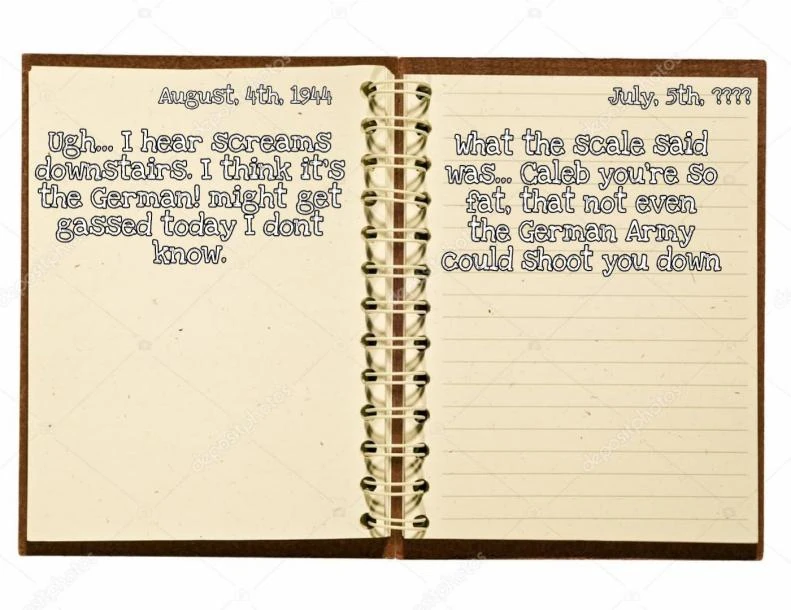 August, 4th, 1944
Ugh... I hear screams
downstairs. I think it's
the German! might get
gassed today I dont
know.
July, 5th, ????
What the scale said
was... Caleb you're so
fat, that not even
the German Army
could shoot you down
depositphotos
depositphotos
depositphotos
depositphotos
depositphotos
depositphotos